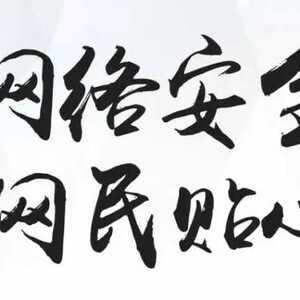 网络安全
网民贴心